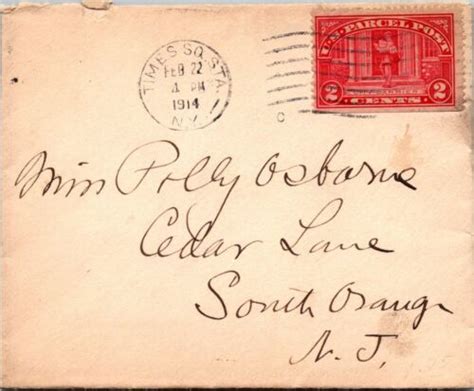 TIMES SQ. STA.
FEB 22
1 PM
1914
N.Y.
U.S. PARCEL POST
2 2
CENTS
C
Miss Polly Osborne
Cedar Lane
South Orange
N. J.